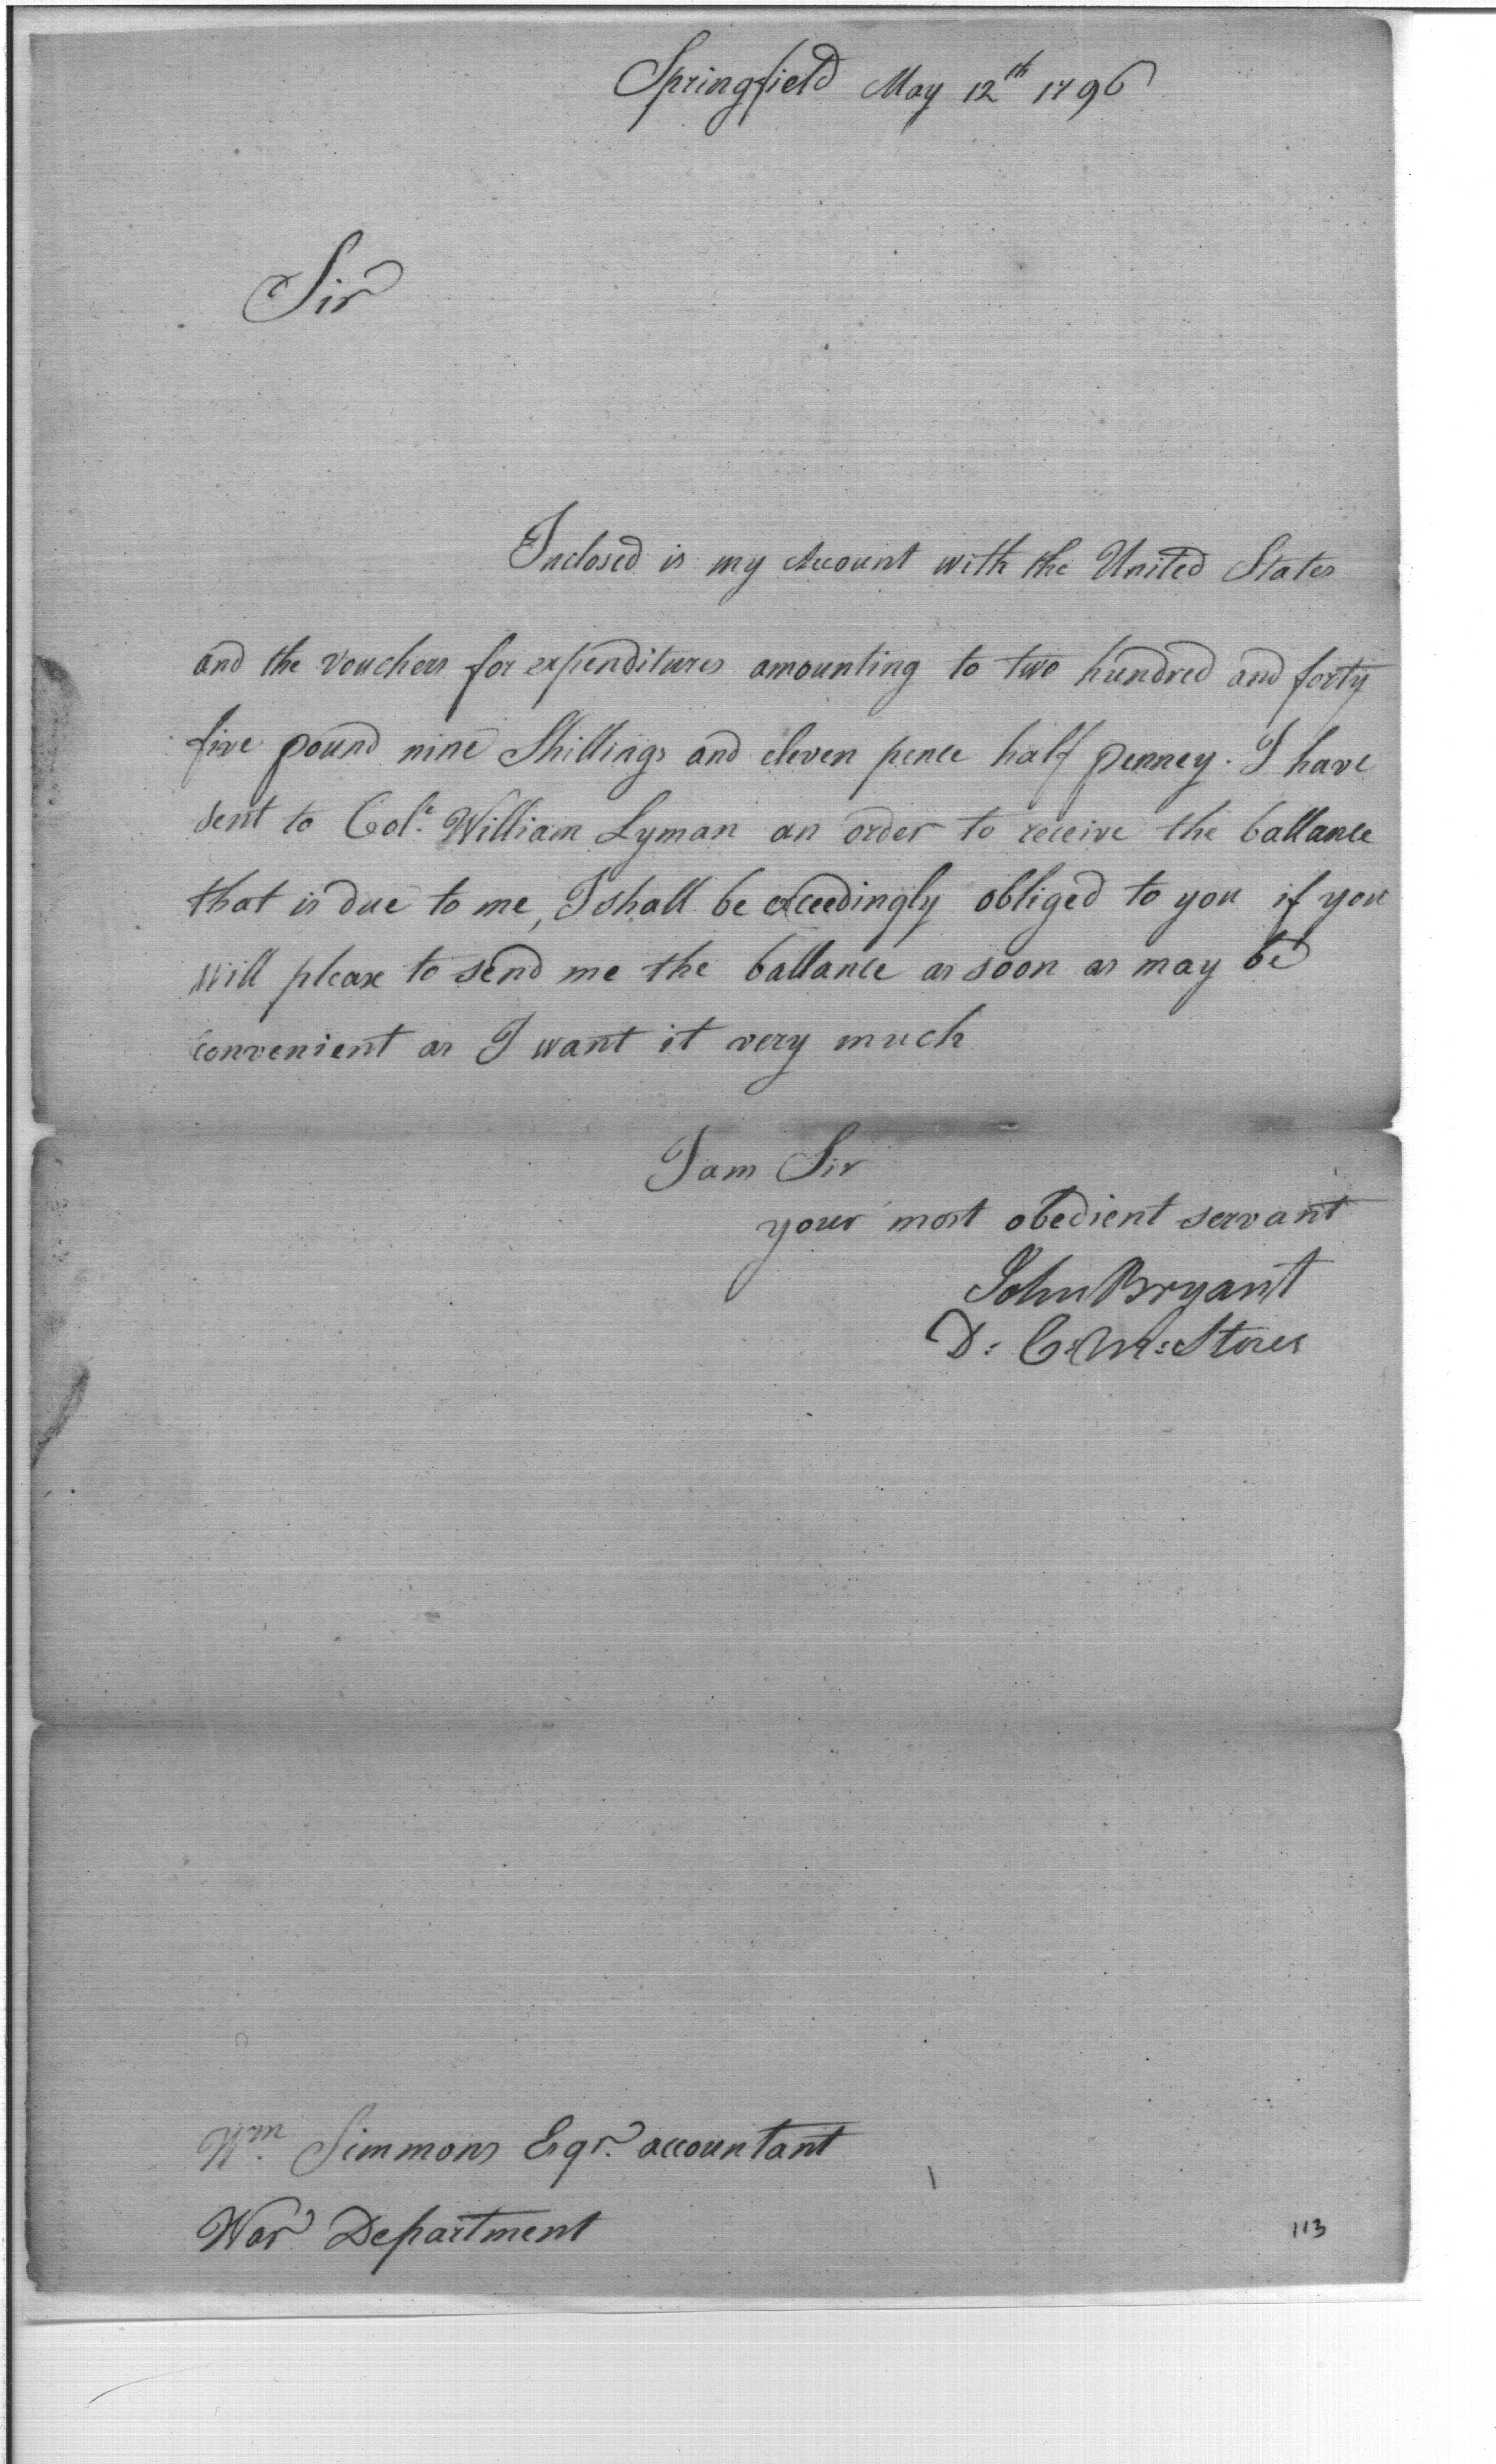 Springfield May 12th 1796
Sir
Inclosed is my Account with the United States
and the vouchers for expenditures amounting to two hundred and forty
five pound nine Shillings and eleven pence half penney. I have
sent to Col. William Lyman an order to receive the ballance
that is due to me, I shall be exceedingly obliged to you if you
will please to send me the ballance as soon as may be
convenient as I want it very much
I am Sir
your most obedient servant
John Bryant
D: C: M: Stores
Wm. Simmons Esqr. accountant
War Department
113